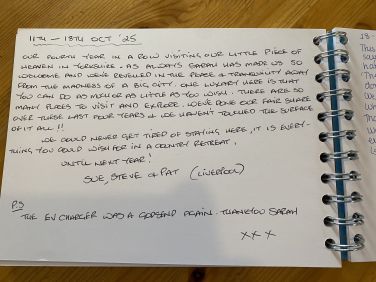 11TH - 18TH OCT '25
OUR FOURTH YEAR IN A ROW VISITING OUR LITTLE PIECE OF
HEAVEN IN YORKSHIRE. AS ALWAYS SARAH HAS MADE US SO
WELCOME AND WE'VE REVELLED IN THE PEACE & TRANQUILITY AWAY
FROM THE MADNESS OF A BIG CITY. ONE LUXURY HERE IS THAT
YOU CAN DO AS MUCH OR AS LITTLE AS YOU WISH. THERE ARE SO
MANY PLACES TO VISIT AND EXPLORE. WE'VE DONE OUR FAIR SHARE
OVER THESE LAST FOUR YEARS & WE HAVEN'T TOUCHED THE SURFACE
OF IT ALL!!
WE COULD NEVER GET TIRED OF STAYING HERE, IT IS EVERY-
THING YOU COULD WISH FOR IN A COUNTRY RETREAT.
UNTIL NEXT YEAR!
SUE, STEVE & PAT (LIVERPOOL)
PS
THE EV CHARGER WAS A GODSEND AGAIN. THANKYOU SARAH
X X X